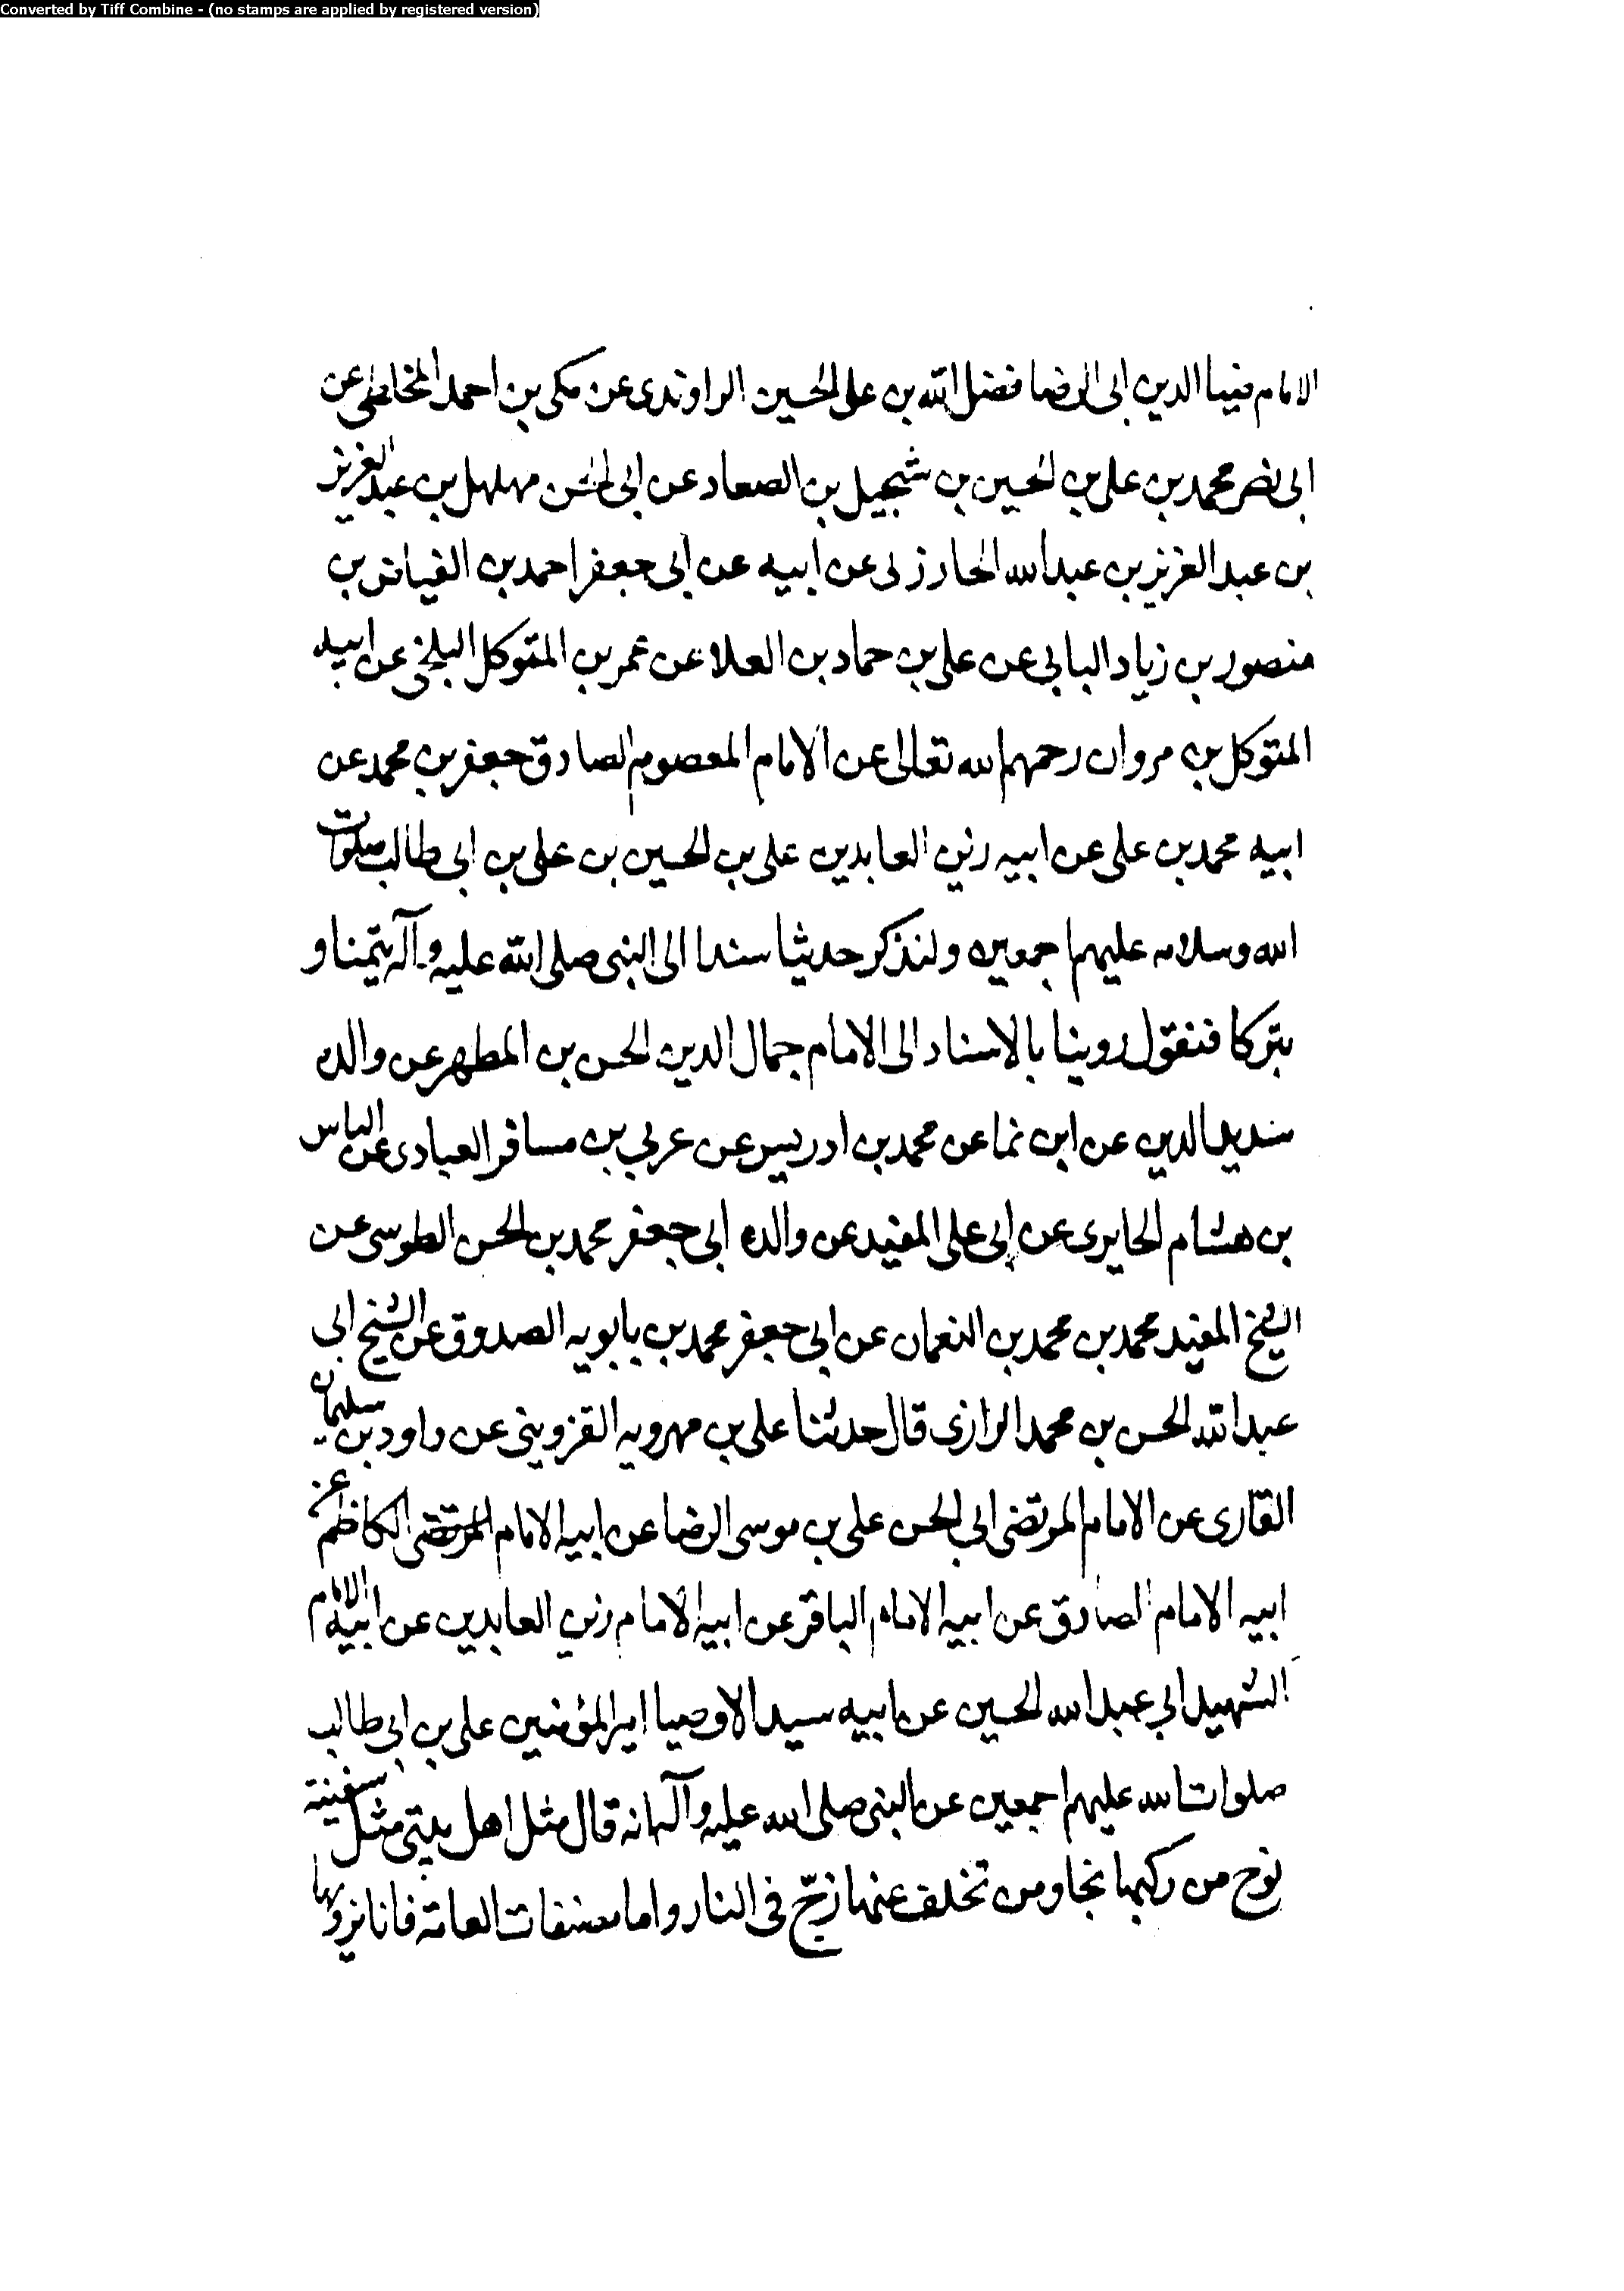 Converted by Tiff Combine - (no stamps are applied by registered version)
الامام ضيا الدين ابى الرضا فضل الله بن على الحسين الراوندى عن مكى بن احمد المخاطى عن
ابى نصر محمد بن على بن الحسين بن شجيل بن الصعاد عن ابى الحسن مهلهل بن عبد العزيز
بن عبد العزيز بن عبد الله الخارزلى عن ابيه عن ابى جعفر احمد بن الفياض بن
منصور بن زياد البابى عن على بن حماد بن العلا عن عمر بن المتوكل البلخى عن ابيه
المتوكل بن مروان رحمهم الله تعالى عن الامام المعصوم الصادق جعفر بن محمد عن
ابيه محمد بن على عن ابيه زين العابدين على بن الحسين بن على بن ابى طالب صلوات
الله وسلامه عليهم اجمعين ولنذكر حديثا سندا الى النبى صلى الله عليه وآله تيمنا و
تبركا فنقول روينا بالاسناد الى الامام جمال الدين الحسن بن المطهر عن والده
سديد الدين عن ابن نما عن محمد بن ادريس عن عربى بن مسافر العبادى عن الياس
بن هشام الحايرى عن ابى على المفيد عن والده ابى جعفر محمد بن الحسن الطوسى عن
الشيخ المفيد محمد بن محمد بن النعمان عن ابى جعفر محمد بن بابويه الصدوق عن الشيخ ابى
عبد الله الحسن بن محمد الرازى قال حدثنا على بن مهرويه القزوينى عن داود بن سليمان
القارى عن الامام المرتضى ابى الحسن على بن موسى الرضا عن ابيه الامام المرتضى الكاظم عن
ابيه الامام الصادق عن ابيه الامام الباقر عن ابيه الامام زين العابدين عن ابيه الامام
الشهيد ابي عبد الله الحسين عن ابيه سيد الاوصيا امير المؤمنين على بن ابى طالب
صلوات الله عليهم اجمعين عن النبى صلى الله عليه وآله انه قال مثل اهل بيتى مثل سفينة
نوح من ركبها نجا ومن تخلف عنها زجّ فى النار واما مصنفات العامة فانا نرويها